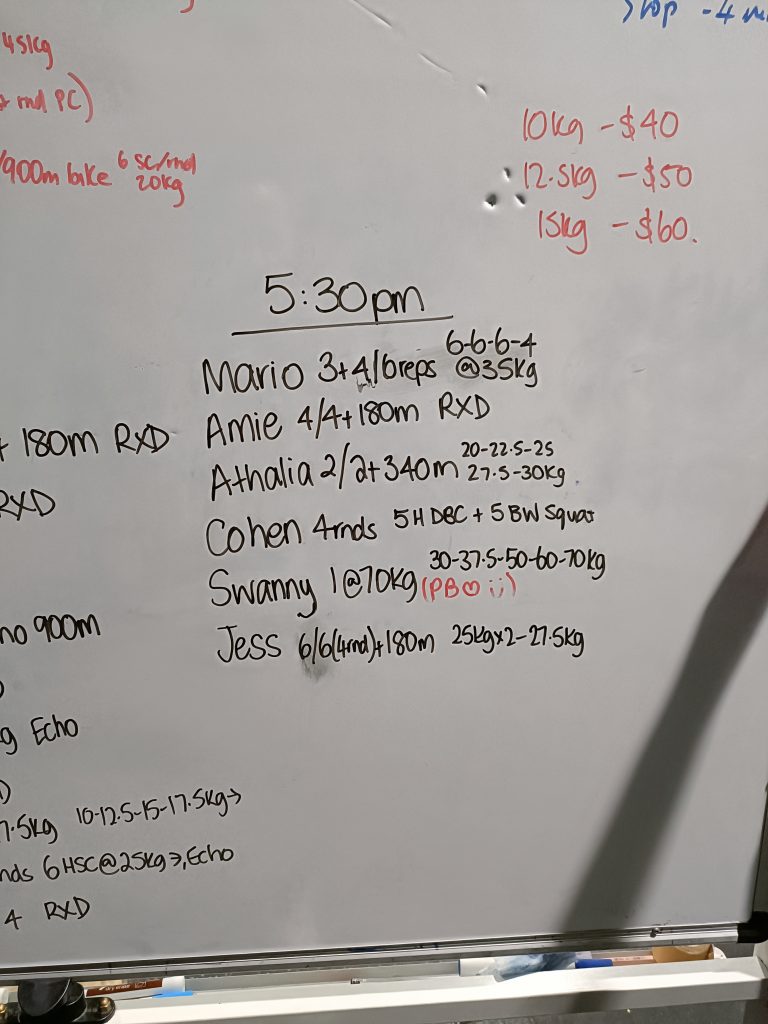 Stop - 4
45kg
rnd PC)
/900m bike 6 SC/rnd
20kg
10kg - $40
12.5kg - $50
15kg - $60.
5:30pm
Mario 3+4/6reps 6-6-6-4
@35kg
Amie 4/4+180m RXD
Athalia 2/2+340m 20-22.5-25
27.5-30kg
Cohen 4rnds 5H DBC + 5 BW Squat
Swanny 1@70kg (PB♡ ¡¡) 30-37.5-50-60-70kg
Jess 6/6(4rnd)+180m 25kgx2-27.5kg
+ 180m RXD
RXD
no 900m
g Echo
7.5kg 10-12.5-15-17.5kg→
nds 6HSC@25kg→, Echo
4 RXD